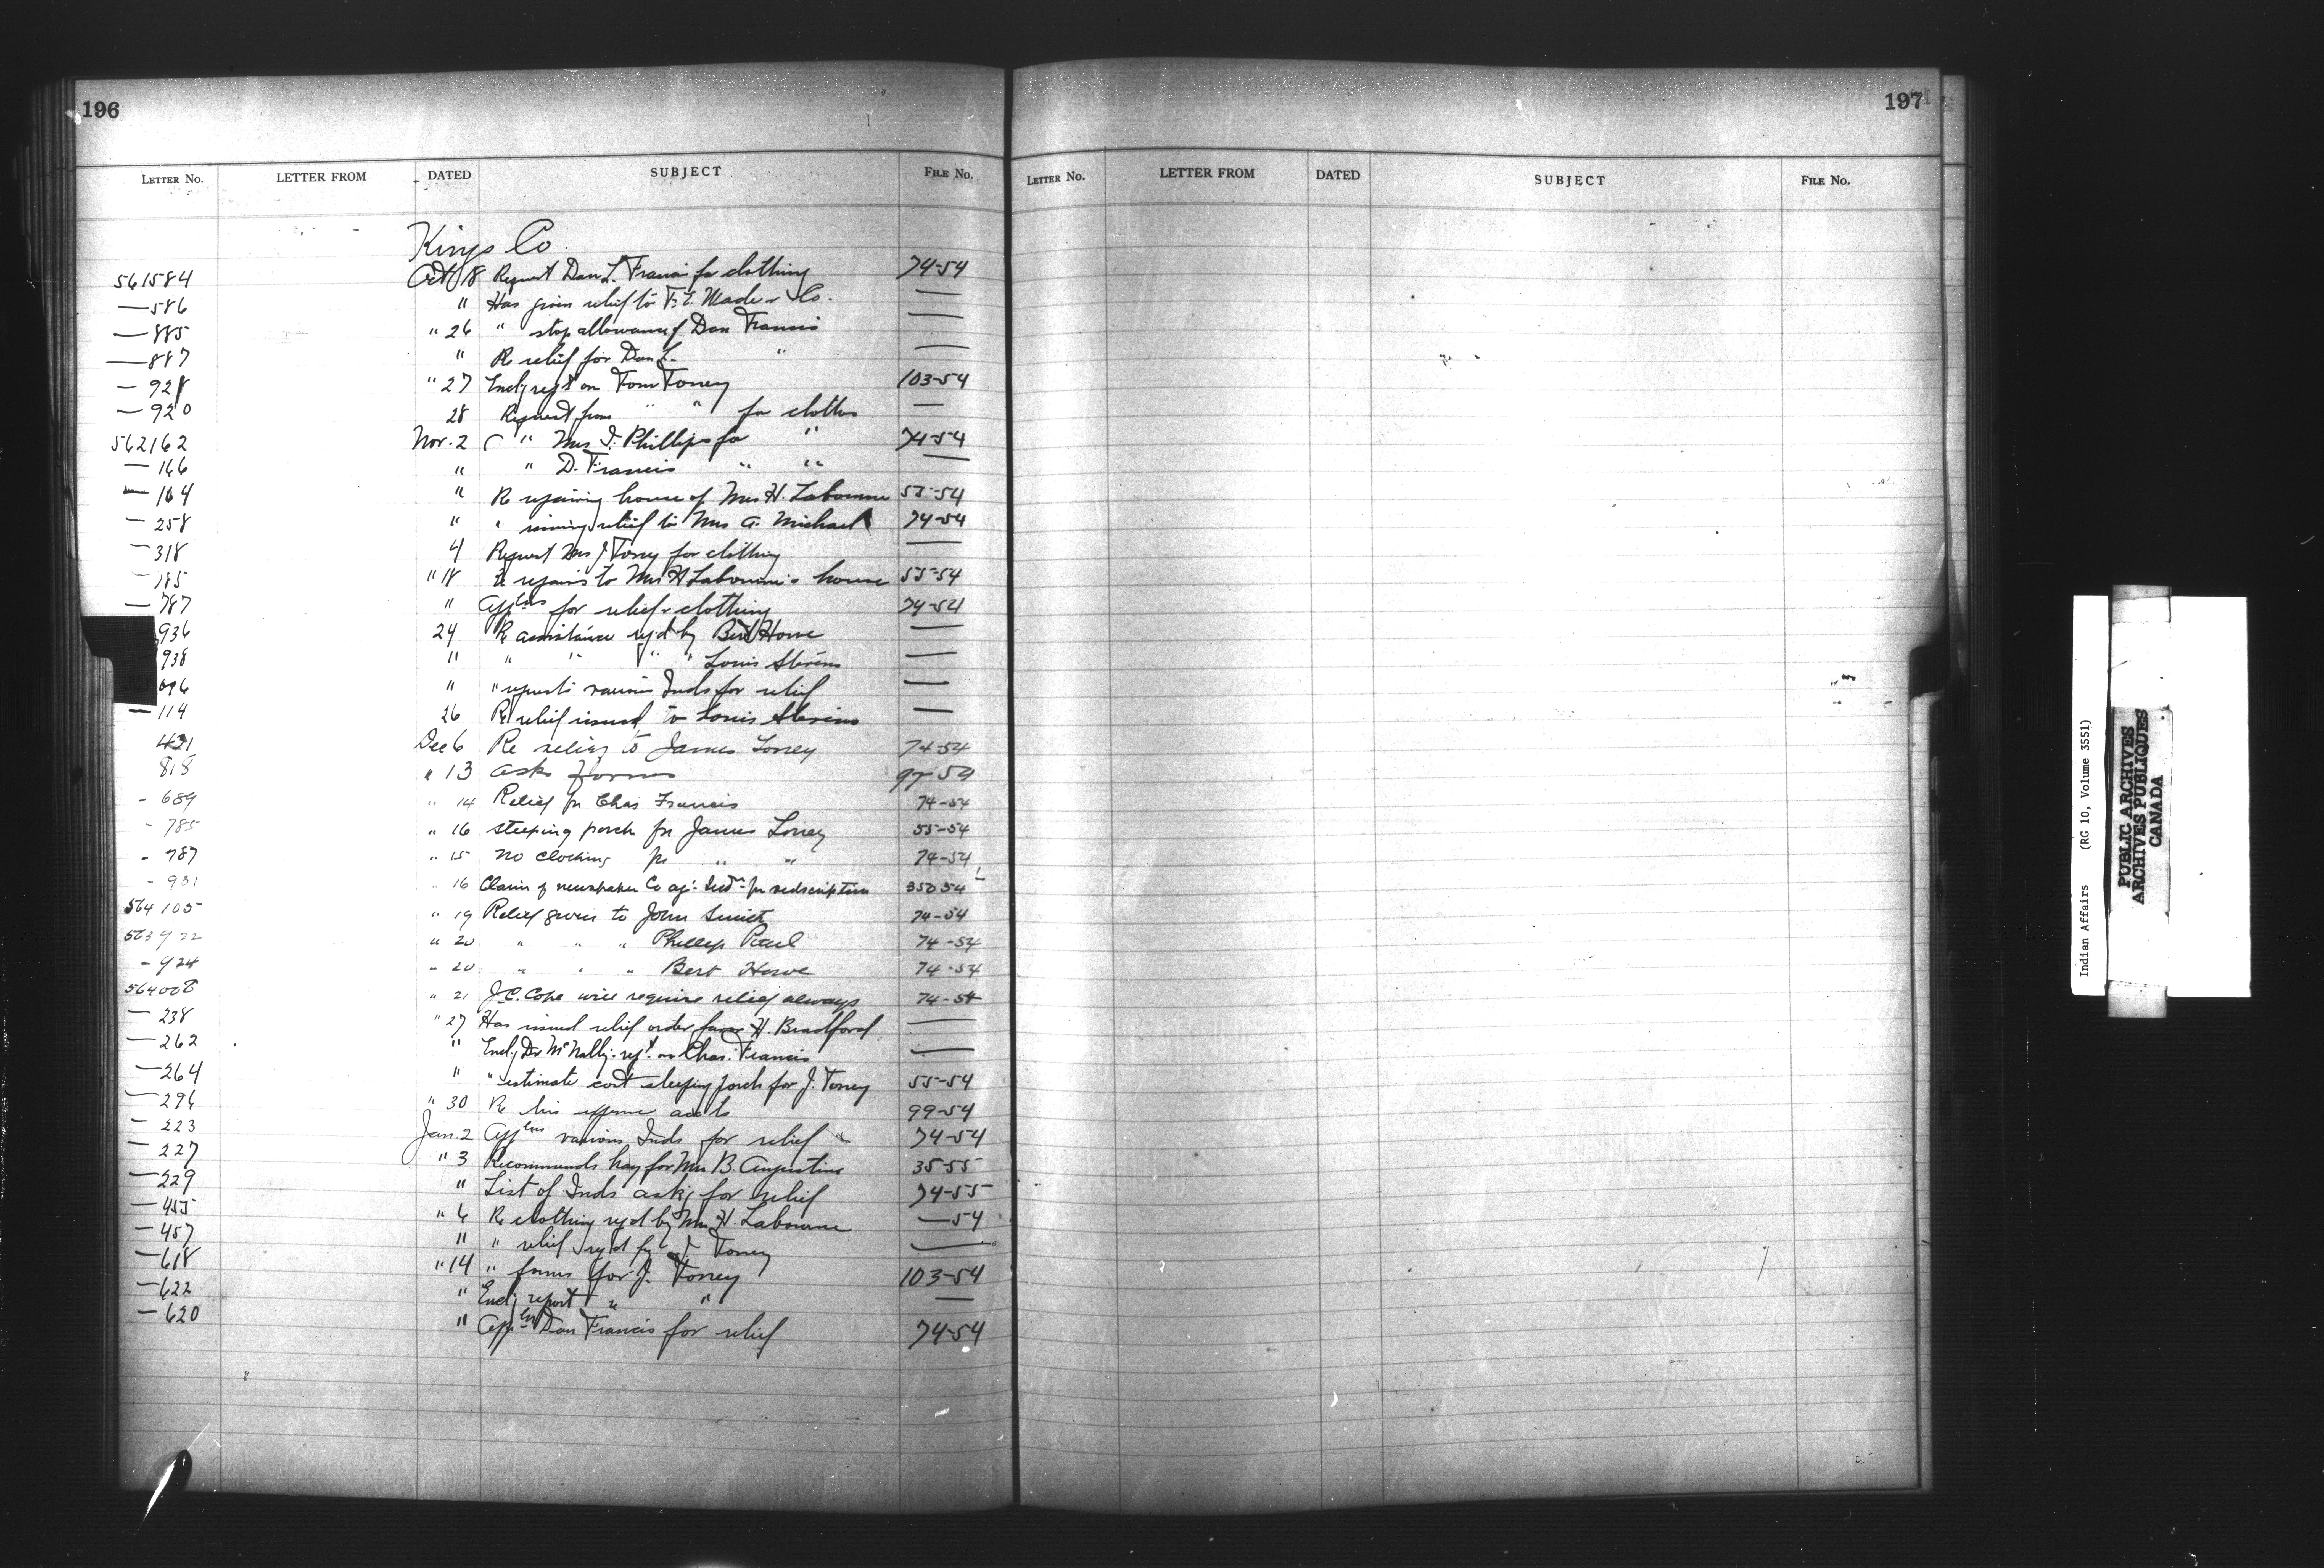 196
LETTER No. LETTER FROM DATED SUBJECT FILE No.
Kings Co.
561584 Oct 18 Request Dan L. Francis for clothing 74-54
—586 " Has given relief to & Co. —
—885 " 26 " stop allowance of Dan Francis —
—887 " Re relief for Dan L. " —
—928 " 27 Enclg rept on Tom Toney 103-54
—920 28 Request from " " for clothes —
562162 Nov. 2 " Mrs J. Phillips for " 74-54
—166 " " D. Francis " " —
—164 " Re repairing house of Mrs H. Labourne 55-54
—258 " " issuing relief to Mrs A. Michael 74-54
—318 4 Request Mrs J Toney for clothing —
—785 " 18 Re repairs to Mrs H Labourne's house 55-54
—787 " Applns for relief & clothing 74-54
936 24 Re assistance reqd by Bert Howe —
938 " " " " " Louis Stevens —
096 " " requests various Inds for relief —
—114 26 Re relief issued to Louis Stevens —
431 Dec 6 Re relief to James Toney 74-54
818 " 13 asks forms 97-54
- 689 " 14 Relief for Chas Francis 74-54
- 785 " 16 sleeping porch for James Toney 55-54
- 787 " 15 No clothing for " " 74-54
- 931 " 16 Claim of newspaper Co agt Indn for subscription 350 54
564105 " 19 Relief given to John Smith 74-54
563922 " 20 " " " Phillip Paul 74-54
- 924 " 20 " " " Bert Howe 74-54
564008 " 21 J.C. Cope will require relief always 74-54
—238 " 27 Has issued relief order favor H. Bradford —
—262 " Enclg Dr McNally rept on Chas. Francis —
—264 " " estimate cost sleeping porch for J. Toney 55-54
—296 " 30 Re his expense accts 99-54
—223 Jan. 2 Applns various Inds for relief 74-54
—227 " 3 Recommends hay for Mrs B. Augustine 35-55
—229 " List of Inds askg for relief 74-55
—455 " 6 Re clothing reqd by Mrs H. Labourne —54
—457 " " relief reqd by J. Toney —
—618 " 14 " forms for J. Toney 103-54
—622 " Enclg report " " —
—620 " Appln Dan Francis for relief 74-54
197
LETTER No. LETTER FROM DATED SUBJECT FILE No.
Indian Affairs (RG 10, Volume 3551)
PUBLIC ARCHIVES
ARCHIVES PUBLIQUES
CANADA